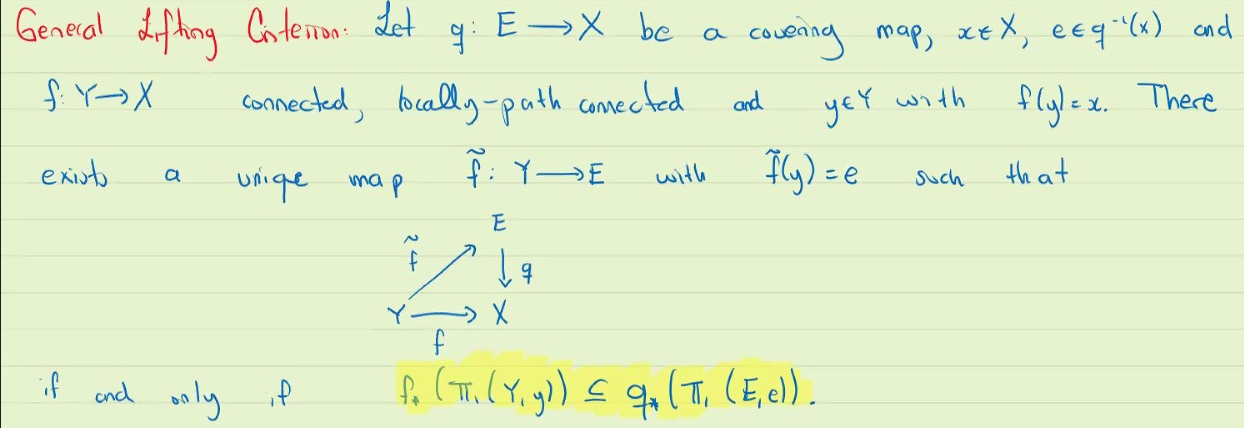 General Lifting Criterion: Let q: E → X be a covering map, x ∈ X, e ∈ q⁻¹(x) and
f: Y → X connected, locally-path connected and y ∈ Y with f(y) = x. There
exists a unique map f̃: Y → E with f̃(y) = e such that
E
f̃ ↓ q
Y → X
f
if and only if f_*(π₁(Y, y)) ⊆ q_*(π₁(E, e)).